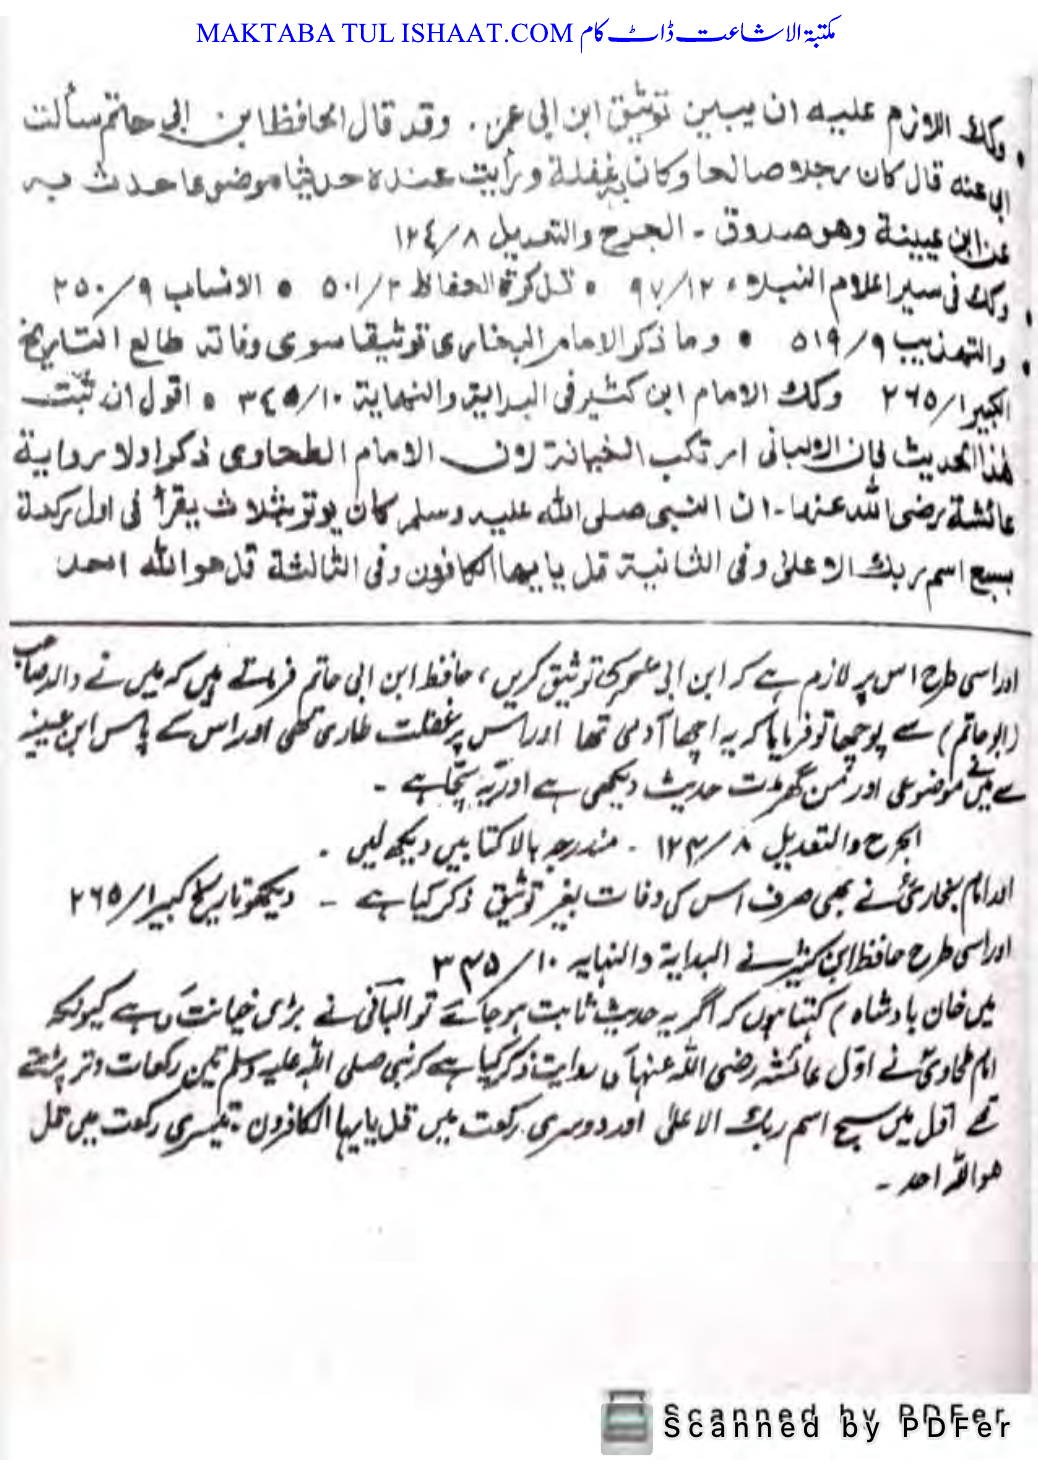 MAKTABA TUL ISHAAT.COM مکتبۃ الاشاعت ڈاٹ کام
وكذا اللازم عليه ان يبين توثيق ابن ابى عمر. وقد قال الحافظ ابن ابى حاتم سألت
ابى عنه قال كان رجلا صالحا وكان به غفلة ورأيت عنده حديثا موضوعا حدث به
عن ابن عيينة وهو صدوق - الجرح والتعديل ٨/١٢٤
وكذا فى سير اعلام النبلاء ١٢/٩٧ • تذكرة الحفاظ ٢/٥٠١ • الانساب ٩/٢٥٠
والتهذيب ٩/٥١٩ • وما ذكر الامام البخارى توثيقا سوى وفاته طالع التاريخ
الكبير ١/٢٦٥ وكذا الامام ابن كثير فى البداية والنهاية ١٠/٣٤٥ • اقول ان ثبت
هذا الحديث فان الالبانى ارتكب الخيانة لان الامام الطحاوى ذكر اولا برواية
عائشة رضى الله عنها - ان النبى صلى الله عليه وسلم كان يوتر بثلاث يقرأ فى اول ركعة
بسبح اسم ربك الاعلى وفى الثانية قل يايها الكافرون وفى الثالثة قل هو الله احد
اور اسی طرح اس پر لازم ہے کہ ابن ابی عمر کی توثیق کریں، حافظ ابن ابی حاتم فرماتے ہیں کہ میں نے والد صاحب
(ابو حاتم) سے پوچھا تو فرمایا کہ یہ اچھا آدمی تھا اور اس پر غفلت طاری تھی اور اس کے پاس ابن عیینہ
سے میں نے موضوعی اور من گھڑت حدیث دیکھی ہے اور یہ سچا ہے -
الجرح والتعدیل ٨/١٢٤ - مندرجہ بالا کتابیں دیکھ لیں .
اور امام بخاریؒ نے بھی صرف اس کی وفات بغیر توثیق ذکر کیا ہے - دیکھو تاریخ کبیر ١/٢٦٥
اور اسی طرح حافظ ابن کثیرؒ نے البدایة والنہایہ ١٠/٣٤٥
میں خان بادشاہ) کہتا ہوں کہ اگر یہ حدیث ثابت ہو جائے تو البانی نے بڑی خیانت کی ہے کیونکہ
امام طحاویؒ نے اوّل عائشہ رضی اللہ عنہا کی روایت ذکر کیا ہے کہ نبی صلی اللہ علیہ وسلم تین رکعات وتر پڑھتے
تھے اول میں سبح اسم ربک الاعلیٰ اور دوسری رکعت میں قل یایہا الکافرون تیسری رکعت میں قل
هو اللہ احد -
Scanned by PDFer